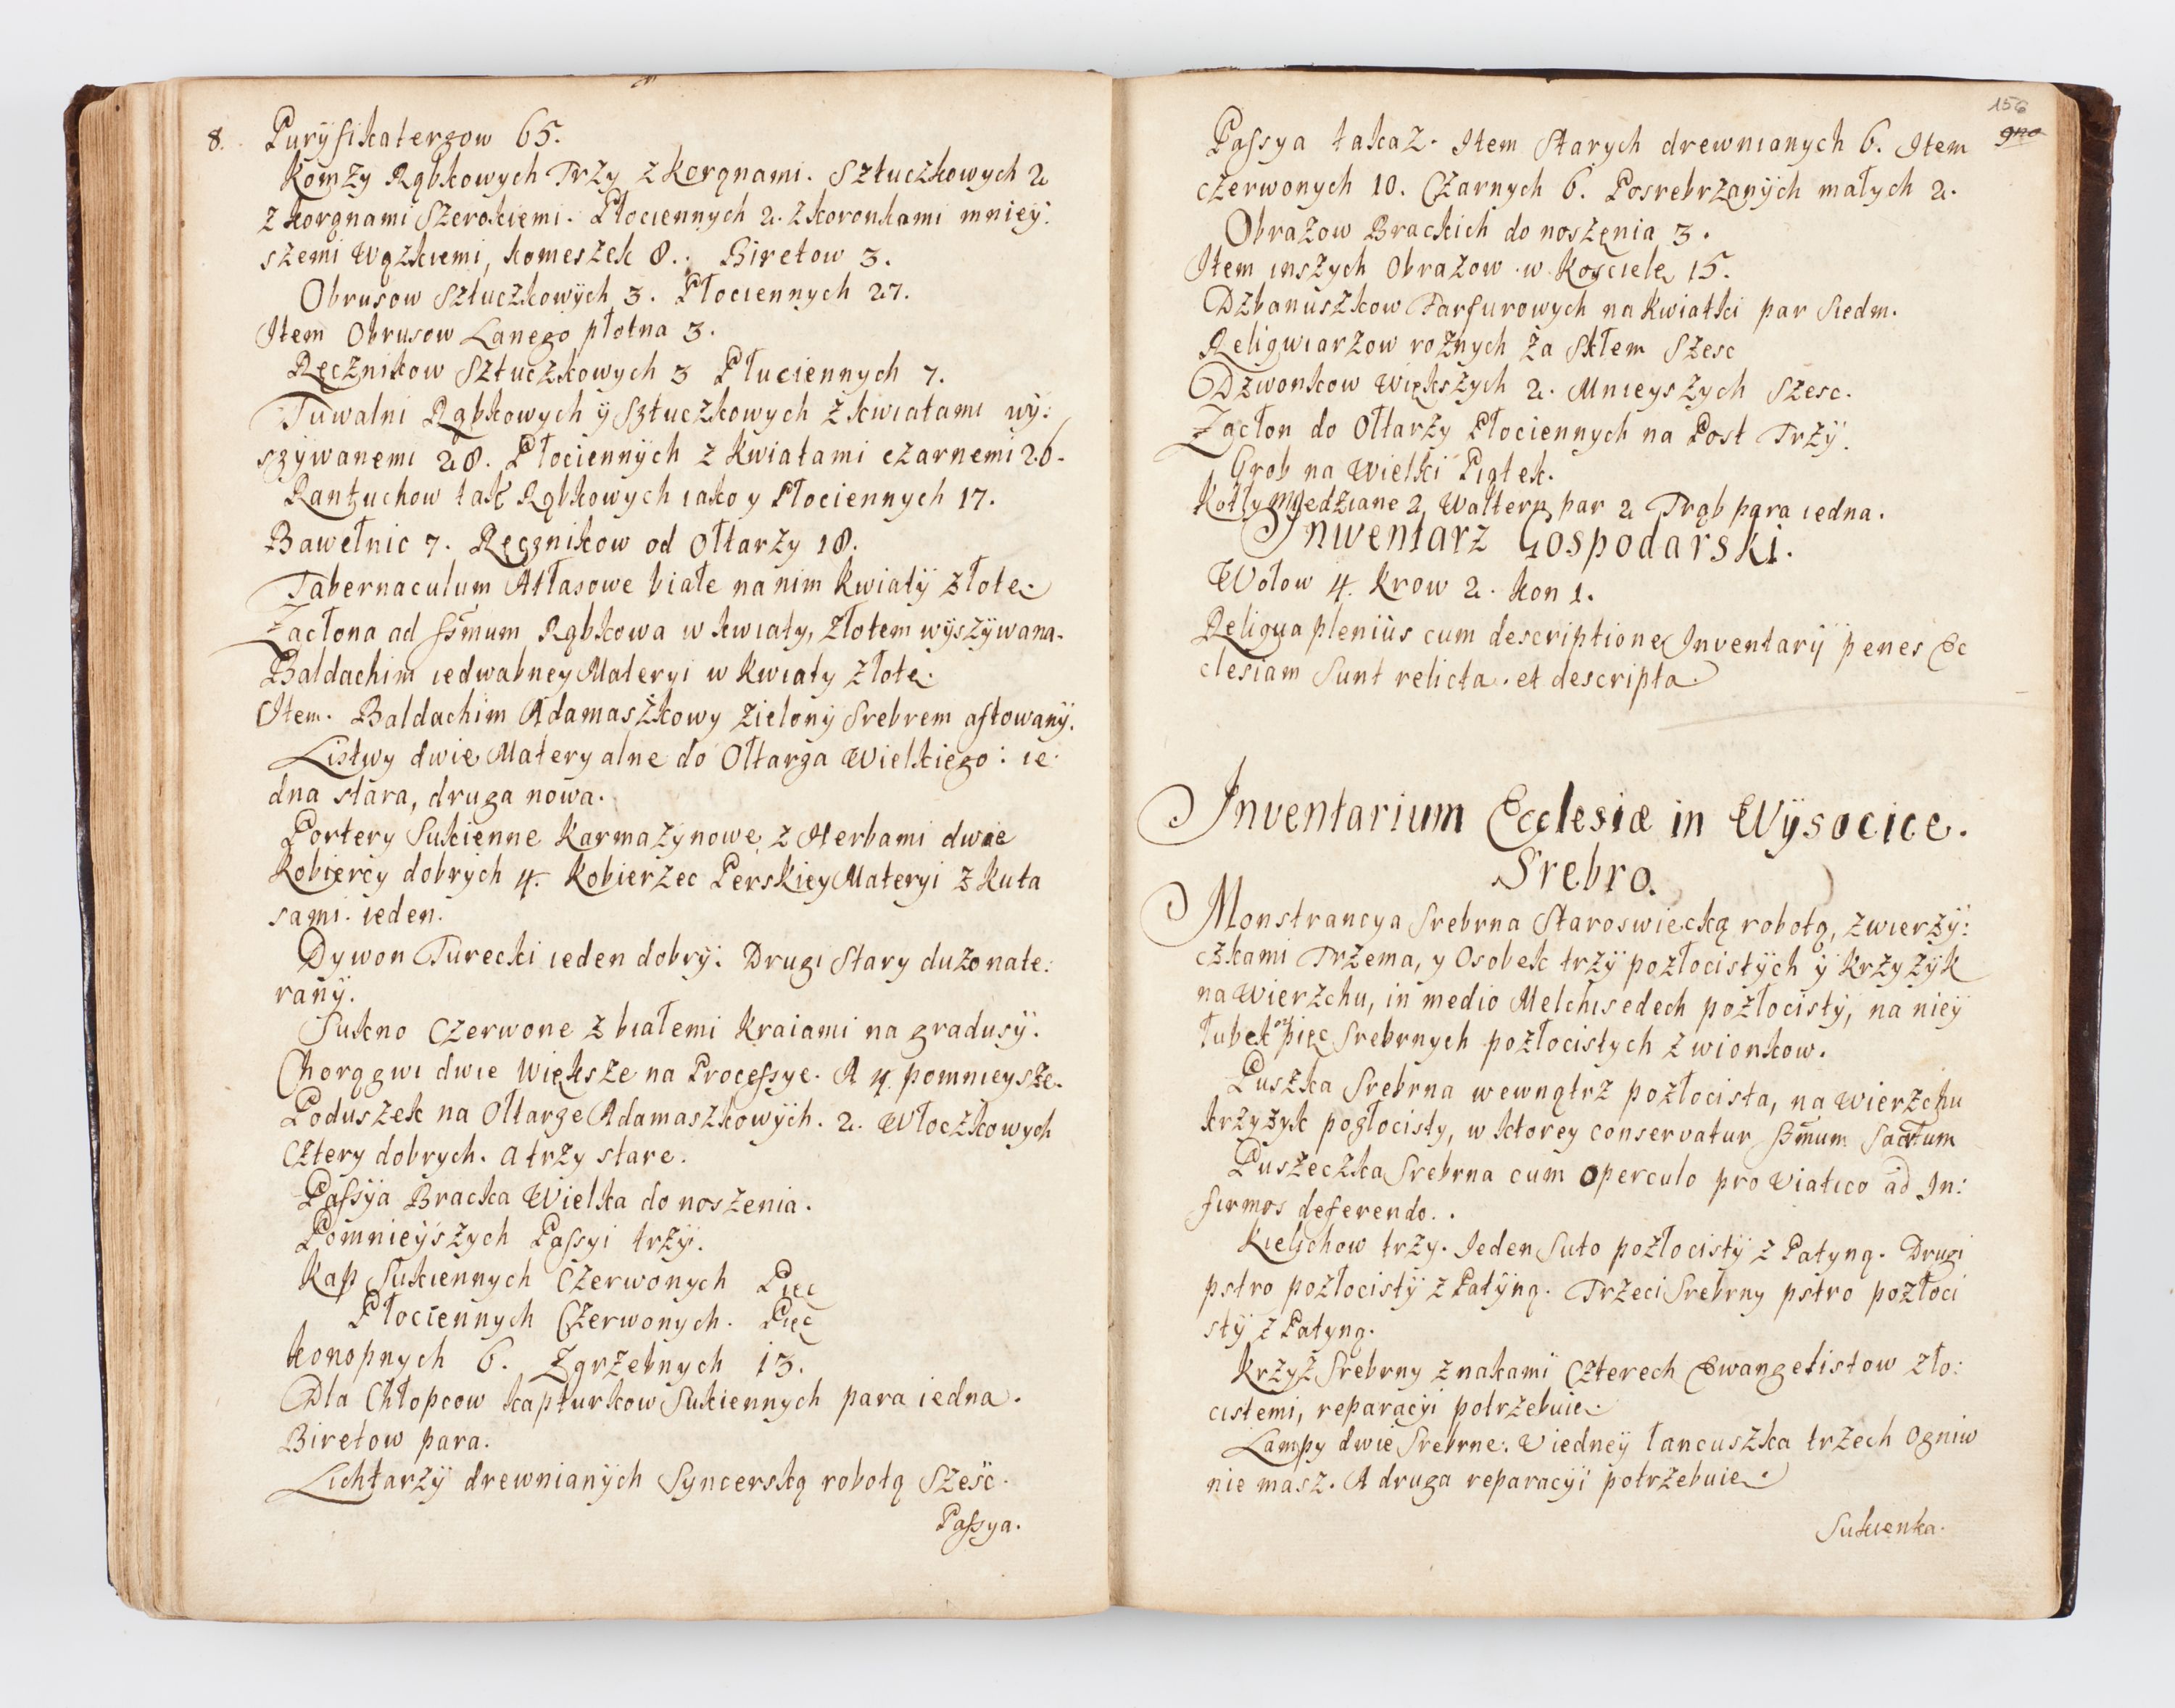 8. Puryfikaterzow 65.
Komzy Rąbkowych Trzy z korąnami. Sztuczkowych 2
z korąnami Szerokiemi. Płociennych 2. z koronkami mniey:
szemi Wązkiemi, komeszek 8.. Biretow 3.
Obrusow Sztuczkowych 3. Płociennych 27.
Item Obrusow Lanego płotna 3.
Ręcznikow Sztuczkowych 3 Płuciennych 7.
Tuwalni Rąbkowych ÿ Sztuczkowych z kwiatami wÿ:
szÿwanemi 28. Płociennÿch z kwiatami czarnemi 26.
Rantuchow tak Rąbkowych iako y Płociennych 17.
Bawełnic 7. Ręcznikow od Ołtarzy 18.
Tabernaculum Atłasowe białe na nim kwiatÿ złote.
Zacłona ad SSmum Rąbkowa w kwiaty, złotem wÿszÿwana.
Baldachim iedwabney Materyi w kwiaty złote.
Item. Baldachim Adamaszkowy zielonÿ Srebrem aftowanÿ.
Listwy dwie Materyalne do Ołtarza Wielkiego: ie
dna stara, druga nowa.
Portery Sukienne Karmazynowe z Herbami dwie
Kobiercy dobrych 4. Kobierzec Perskiey Materyi z kuta
sami. ieden.
Dywon Turecki ieden dobrÿ. Drugi Stary duzo nate:
ranÿ.
Sukno Czerwone z białemi Kraiami na gradusÿ.
Chorągwi dwie Większe na Processye. A 4. pomnieysze.
Poduszek na Ołtarze Adamaszkowÿch. 2. Włoczkowych
Cztery dobrych. a trzy stare.
Passÿa Bracka Wielka do noszenia.
Pomnieÿszych Passyi trzÿ.
Kap Sukiennych Czerwonych Pięc
Płociennych Czerwonych. Pięc
konopnych 6. Zgrzebnych 13.
Dla Chłopcow kapturkow Sukiennych para iedna.
Biretow para.
Lichtarzÿ drewnianÿch Syncerską robotą Szesc.
Passya.
156
Passya takaz. Item Starych drewnianych 6. Item
czerwonych 10. Czarnych 6. Posrebrzanÿch małych 2.
Obrazow Brackich do noszęnia 3.
Item inszych Obrazow w Kosciele 15.
Dzbanuszkow Farfurowych na kwiatki par Siedm.
Religwiarzow roznych za Skłem Szesc
Dzwonkow Większych 2. Mnieyszych Szesc.
Zacłon do Ołtarzy Płociennych na Post Trzÿ.
Grob na Wielki Piątek.
Kotły Miedziane 2, Waltern par 2 Trąb para iedna.
Inwentarz Gospodarski.
Wołow 4. Krow 2. kon 1.
Reliqua pleniùs cum descriptione Inventarÿ penes Ec
clesiam Sunt relicta. et descripta.
Inventarium Ecclesiæ in Wÿsocice.
Srebro.
Monstrancya Srebrna Staroswiecką robotą, z wierzÿ:
czkami Trzema, y Osobek trzÿ pozłocistÿch ÿ krzyzÿk
na Wierzchu, in medio Melchisedech pozłocistÿ, na nieÿ
łubek pięc Srebrnych pozłocistych z wionkow.
Puszka Srebrna wewnątrz pozłocista, na Wierzchu
krzyzyk pozłocisty, w ktorey conservatur SSmum Sacrtum
Puszeczka Srebrna cum operculo pro Viatico ad In:
firmos deferendo..
Kielichow trzy. Ieden Suto pozłocistÿ z Patyną. Drugi
pstro pozłocistÿ z Patÿną. Trzeci Srebrny pstro pozłoci
stÿ z Patyną.
Krzyz Srebrny znakami Czterech Ewangelistow zło:
cistemi, reparacÿi potrzebuie.
Lampy dwie Srebrne. U iedneÿ łancuszka trzech Ogniw
nie masz. A druga reparacÿi potrzebuie.
Sukienka.